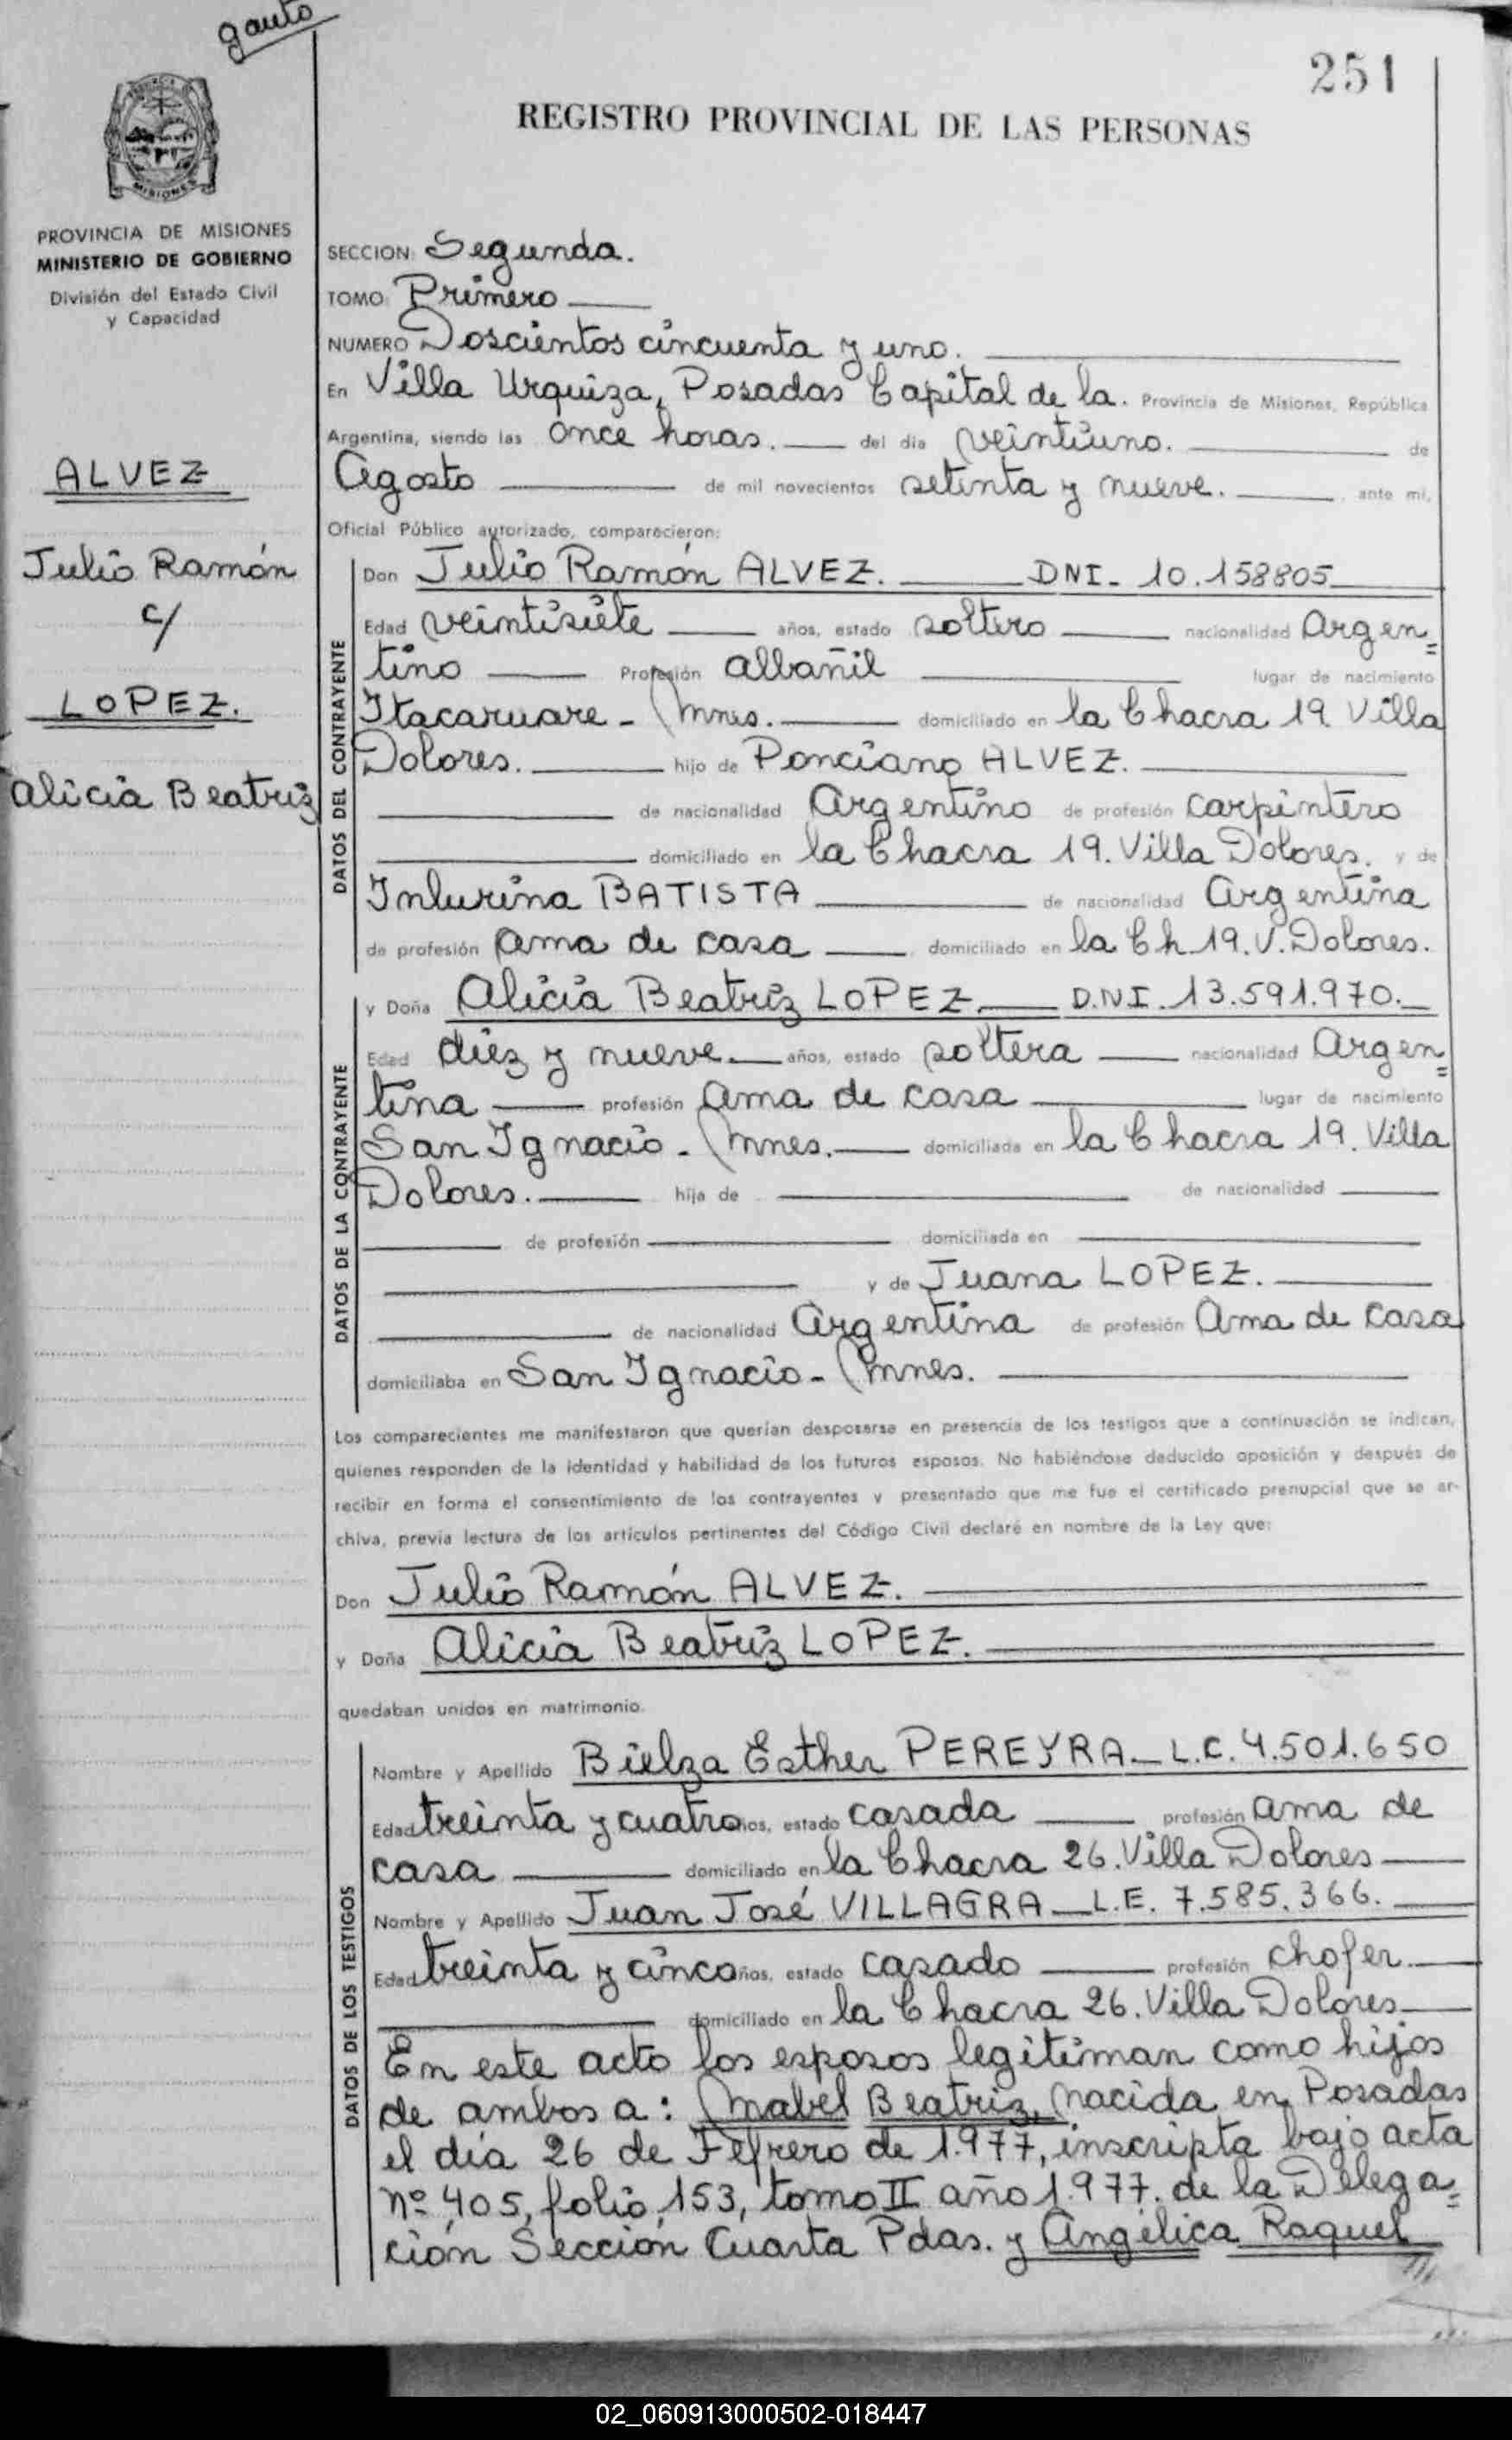 gauto
251
REGISTRO PROVINCIAL DE LAS PERSONAS
MISIONES
PROVINCIA DE MISIONES
MINISTERIO DE GOBIERNO
División del Estado Civil
y Capacidad
ALVEZ
Julio Ramón
c/
LOPEZ.
Alicia Beatriz
SECCION: Segunda.
TOMO: Primero
NUMERO Doscientos cincuenta y uno.
En Villa Urquiza, Posadas Capital de la. Provincia de Misiones, República
Argentina, siendo las once horas. del día veintiuno. de
Agosto de mil novecientos setenta y nueve. ante mí,
Oficial Público autorizado, comparecieron:
DATOS DEL CONTRAYENTE
Don Julio Ramón ALVEZ. DNI- 10.158805
Edad veintisiete años, estado soltero nacionalidad Argen=
tino Profesión albañil lugar de nacimiento
Itacaruare - Mnes. domiciliado en la Chacra 19 Villa
Dolores. hijo de Ponciano ALVEZ.
de nacionalidad Argentino de profesión carpintero
domiciliado en la Chacra 19. Villa Dolores. y de
Inlurina BATISTA de nacionalidad Argentina
de profesión ama de casa domiciliado en la Ch 19. V. Dolores.
DATOS DE LA CONTRAYENTE
y Doña Alicia Beatriz LOPEZ D.N.I. 13.591.970.
Edad diez y nueve. años, estado soltera nacionalidad Argen=
tina profesión ama de casa lugar de nacimiento
San Ignacio - Mnes. domiciliada en la Chacra 19. Villa
Dolores. hija de de nacionalidad
de profesión domiciliada en
y de Juana LOPEZ.
de nacionalidad Argentina de profesión Ama de casa
domiciliaba en San Ignacio - Mnes.
Los comparecientes me manifestaron que querían desposarse en presencia de los testigos que a continuación se indican,
quienes responden de la identidad y habilidad de los futuros esposos. No habiéndose deducido oposición y después de
recibir en forma el consentimiento de los contrayentes y presentado que me fue el certificado prenupcial que se ar-
chiva, previa lectura de los artículos pertinentes del Código Civil declaré en nombre de la Ley que:
Don Julio Ramón ALVEZ.
y Doña Alicia Beatriz LOPEZ.
quedaban unidos en matrimonio.
DATOS DE LOS TESTIGOS
Nombre y Apellido Bielza Esther PEREYRA L.C. 4.501.650
Edad treinta y cuatro años, estado casada profesión ama de
casa domiciliado en la Chacra 26. Villa Dolores
Nombre y Apellido Juan José VILLAGRA L.E. 7.585.366.
Edad treinta y cinco años, estado casado profesión chofer
domiciliado en la Chacra 26. Villa Dolores
En este acto los esposos legitiman como hijos
de ambos a: Mabel Beatriz, nacida en Posadas
el día 26 de Febrero de 1.977, inscripta bajo acta
nº 405, folio 153, tomo II año 1.977. de la Delega=
ción Sección Cuarta Pdas. y Angélica Raquel
02_060913000502-018447